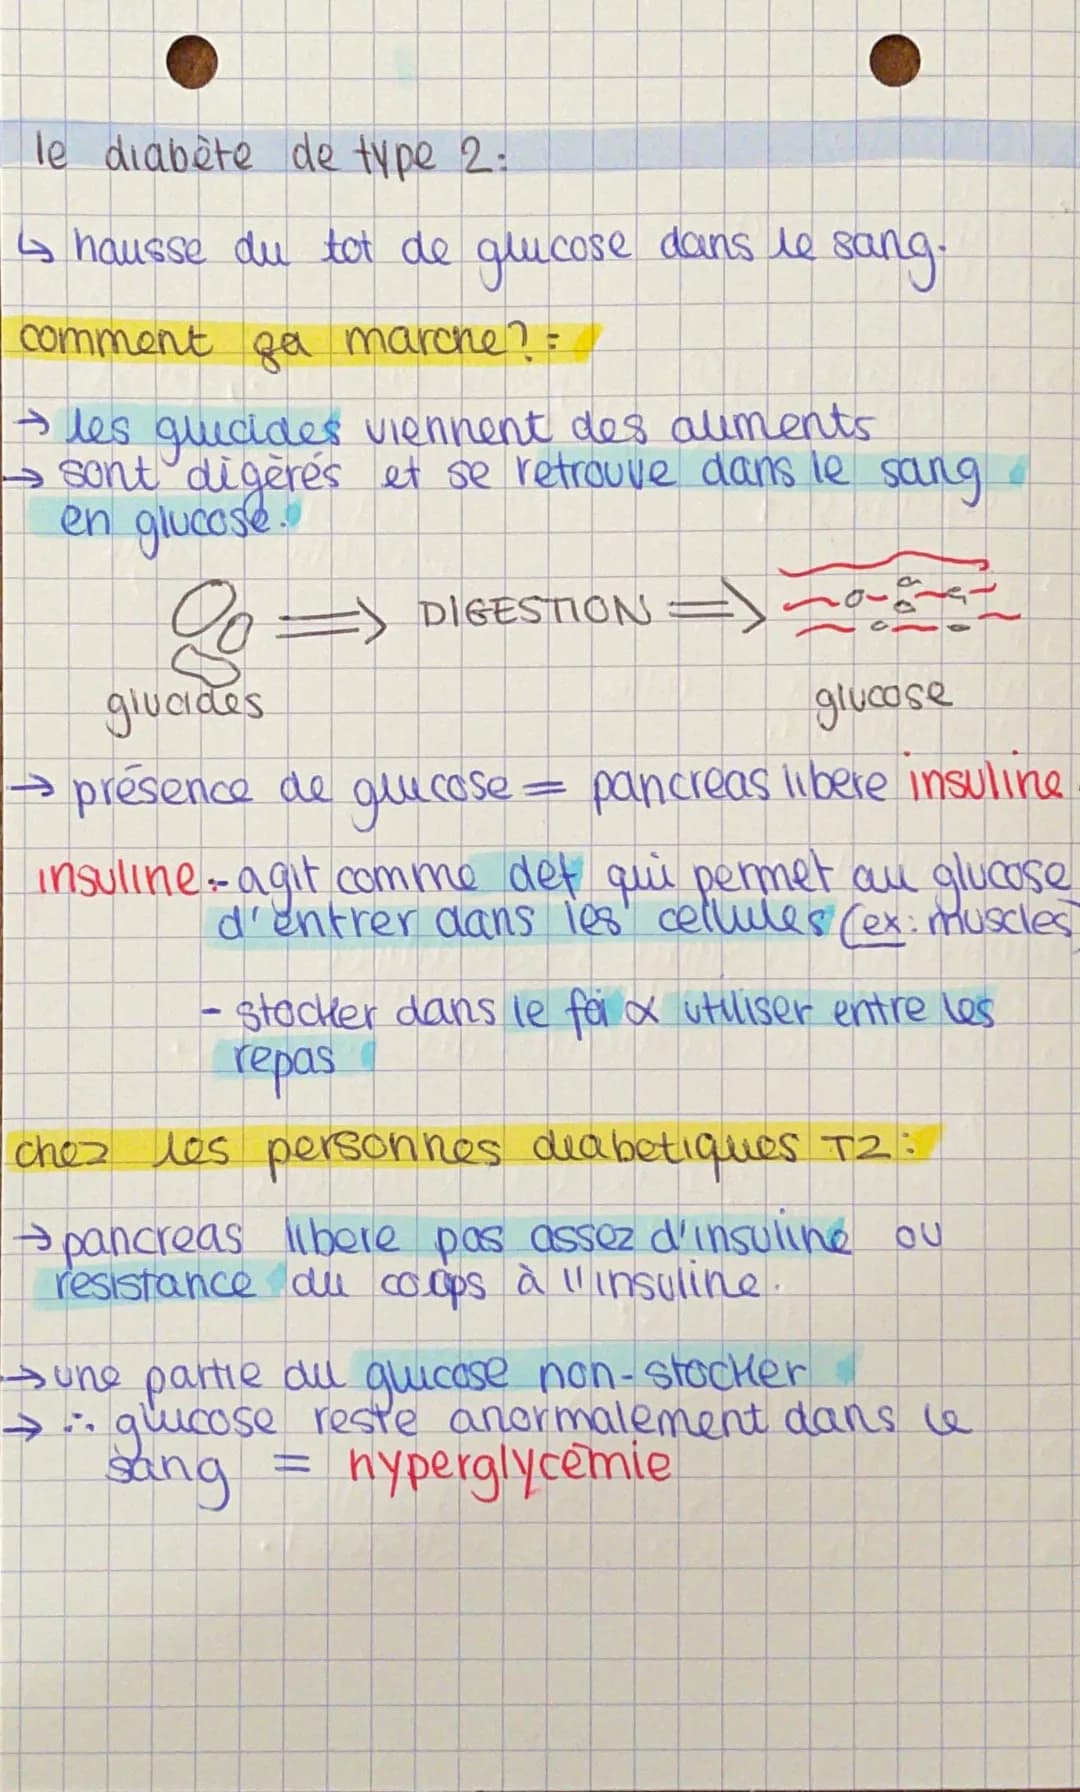 le diabète de type 2:
↳ hausse du tot de glucose dans le sang.
comment ça marche? :
→ les glucides viennent des aliments
→ sont digérés et se retrouve dans le sang
en glucose.
⇒ DIGESTION ⇒
glucides glucose
→ présence de glucose = pancreas libere insuline
insuline :- agit comme clef qui permet au glucose
d'entrer dans les cellules (ex: muscles)
- stocker dans le foi & utiliser entre les
repas
chez les personnes diabetiques T2:
→ pancreas libere pas assez d'insuline ou
resistance du corps à l'insuline.
→ une partie du glucose non-stocker
→ ∴ glucose reste anormalement dans le
sang = hyperglycémie